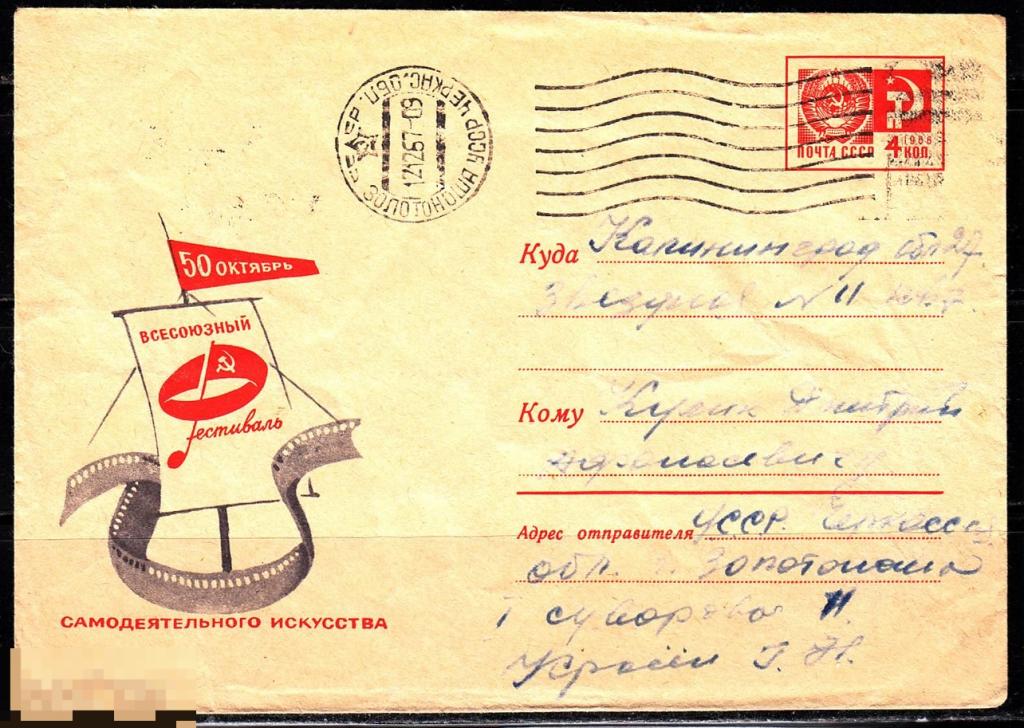 ЗОЛОТОНОША УССР ЧЕРКАС. ОБЛ.
121267-09
ПОЧТА СССР
1966
4 КОП.
50 ОКТЯБРЬ
ВСЕСОЮЗНЫЙ
фестиваль
САМОДЕЯТЕЛЬНОГО ИСКУССТВА
Куда Калининград обл 27
№ 11
Кому Кулик Дмитрий
Адрес отправителя УССР. Черкасс
обл. г. Золотоноша
Суворова 11